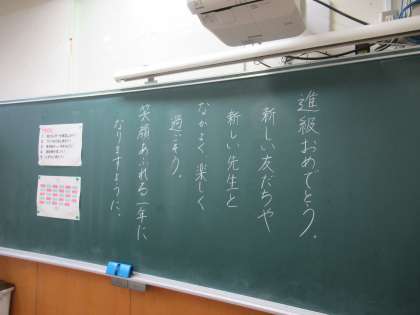 進級おめでとう。
新しい友だちや
新しい先生と
なかよく楽しく
過ごそう。
笑顔あふれる一年に
なりますように。